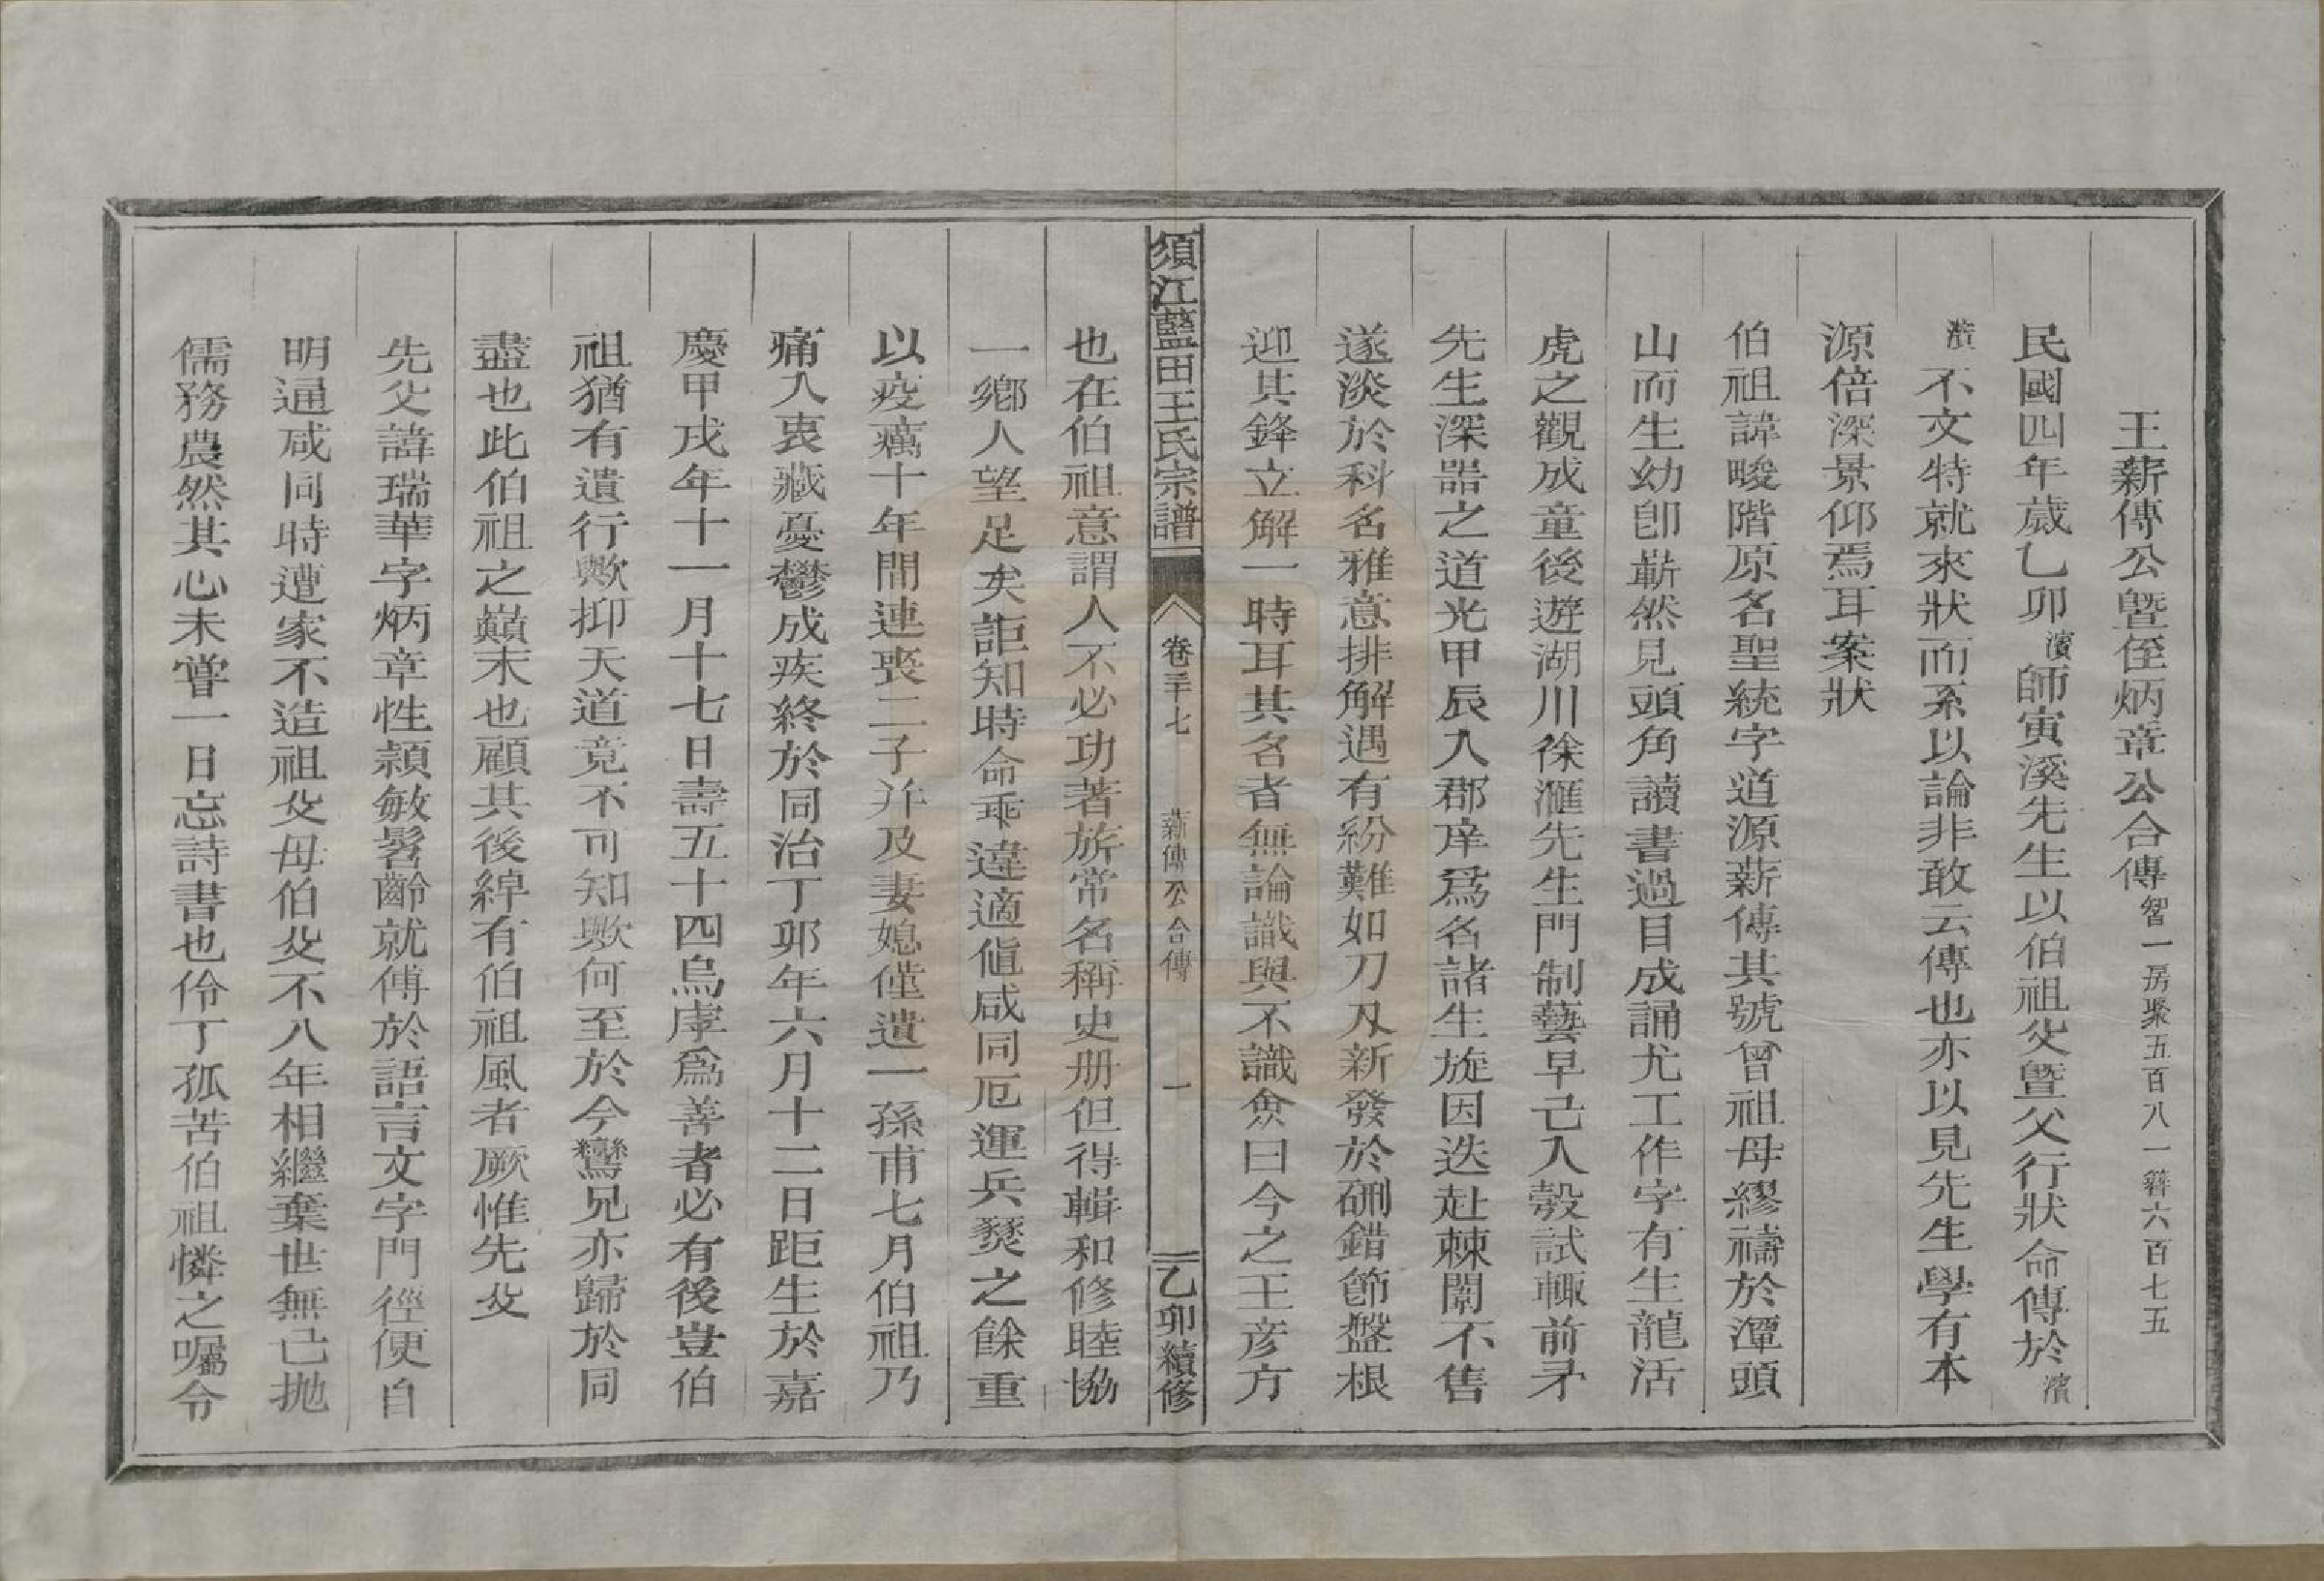 王薪傳公曁侄炳章公合傳智一房聚五百八一聯六百七五
民國四年歲乙卯濱師寅溪先生以伯祖父曁父行狀命傳於濱
濱不文特就來狀而系以論非敢云傳也亦以見先生學有本
源倍深景仰焉耳案狀
伯祖諱畯階原名聖統字道源薪傳其號曾祖母繆禱於潭頭
山而生幼卽嶄然見頭角讀書過目成誦尤工作字有生龍活
虎之觀成童後遊湖川徐滙先生門制藝早已入彀試輒前矛
先生深器之道光甲辰入郡庠爲名諸生旋因迭赴棘闈不售
遂淡於科名雅意排解遇有紛難如刀刄新發於硎錯節盤根
迎其鋒立解一時耳其名者無論識與不識僉曰今之王彦方
須江藍田王氏宗譜 卷三十七 薪傳公合傳 一 乙卯續修
也在伯祖意謂人不必功著旂常名稱史册但得輯和修睦協
一鄉人望足矣詎知時命乖違適値咸同厄運兵燹之餘重
以疫癘十年間連喪二子并及妻媳僅遺一孫甫七月伯祖乃
痛入衷藏憂鬱成疾終於同治丁卯年六月十二日距生於嘉
慶甲戌年十一月十七日壽五十四烏虖爲善者必有後豈伯
祖猶有遺行歟抑天道竟不可知歟何至於今鸞兄亦歸於同
盡也此伯祖之巔末也顧其後綽有伯祖風者厥惟先父
先父諱瑞華字炳章性穎敏髫齡就傅於語言文字門徑便自
明通咸同時遭家不造祖父母伯父不八年相繼棄世無已抛
儒務農然其心未嘗一日忘詩書也伶丁孤苦伯祖憐之囑令